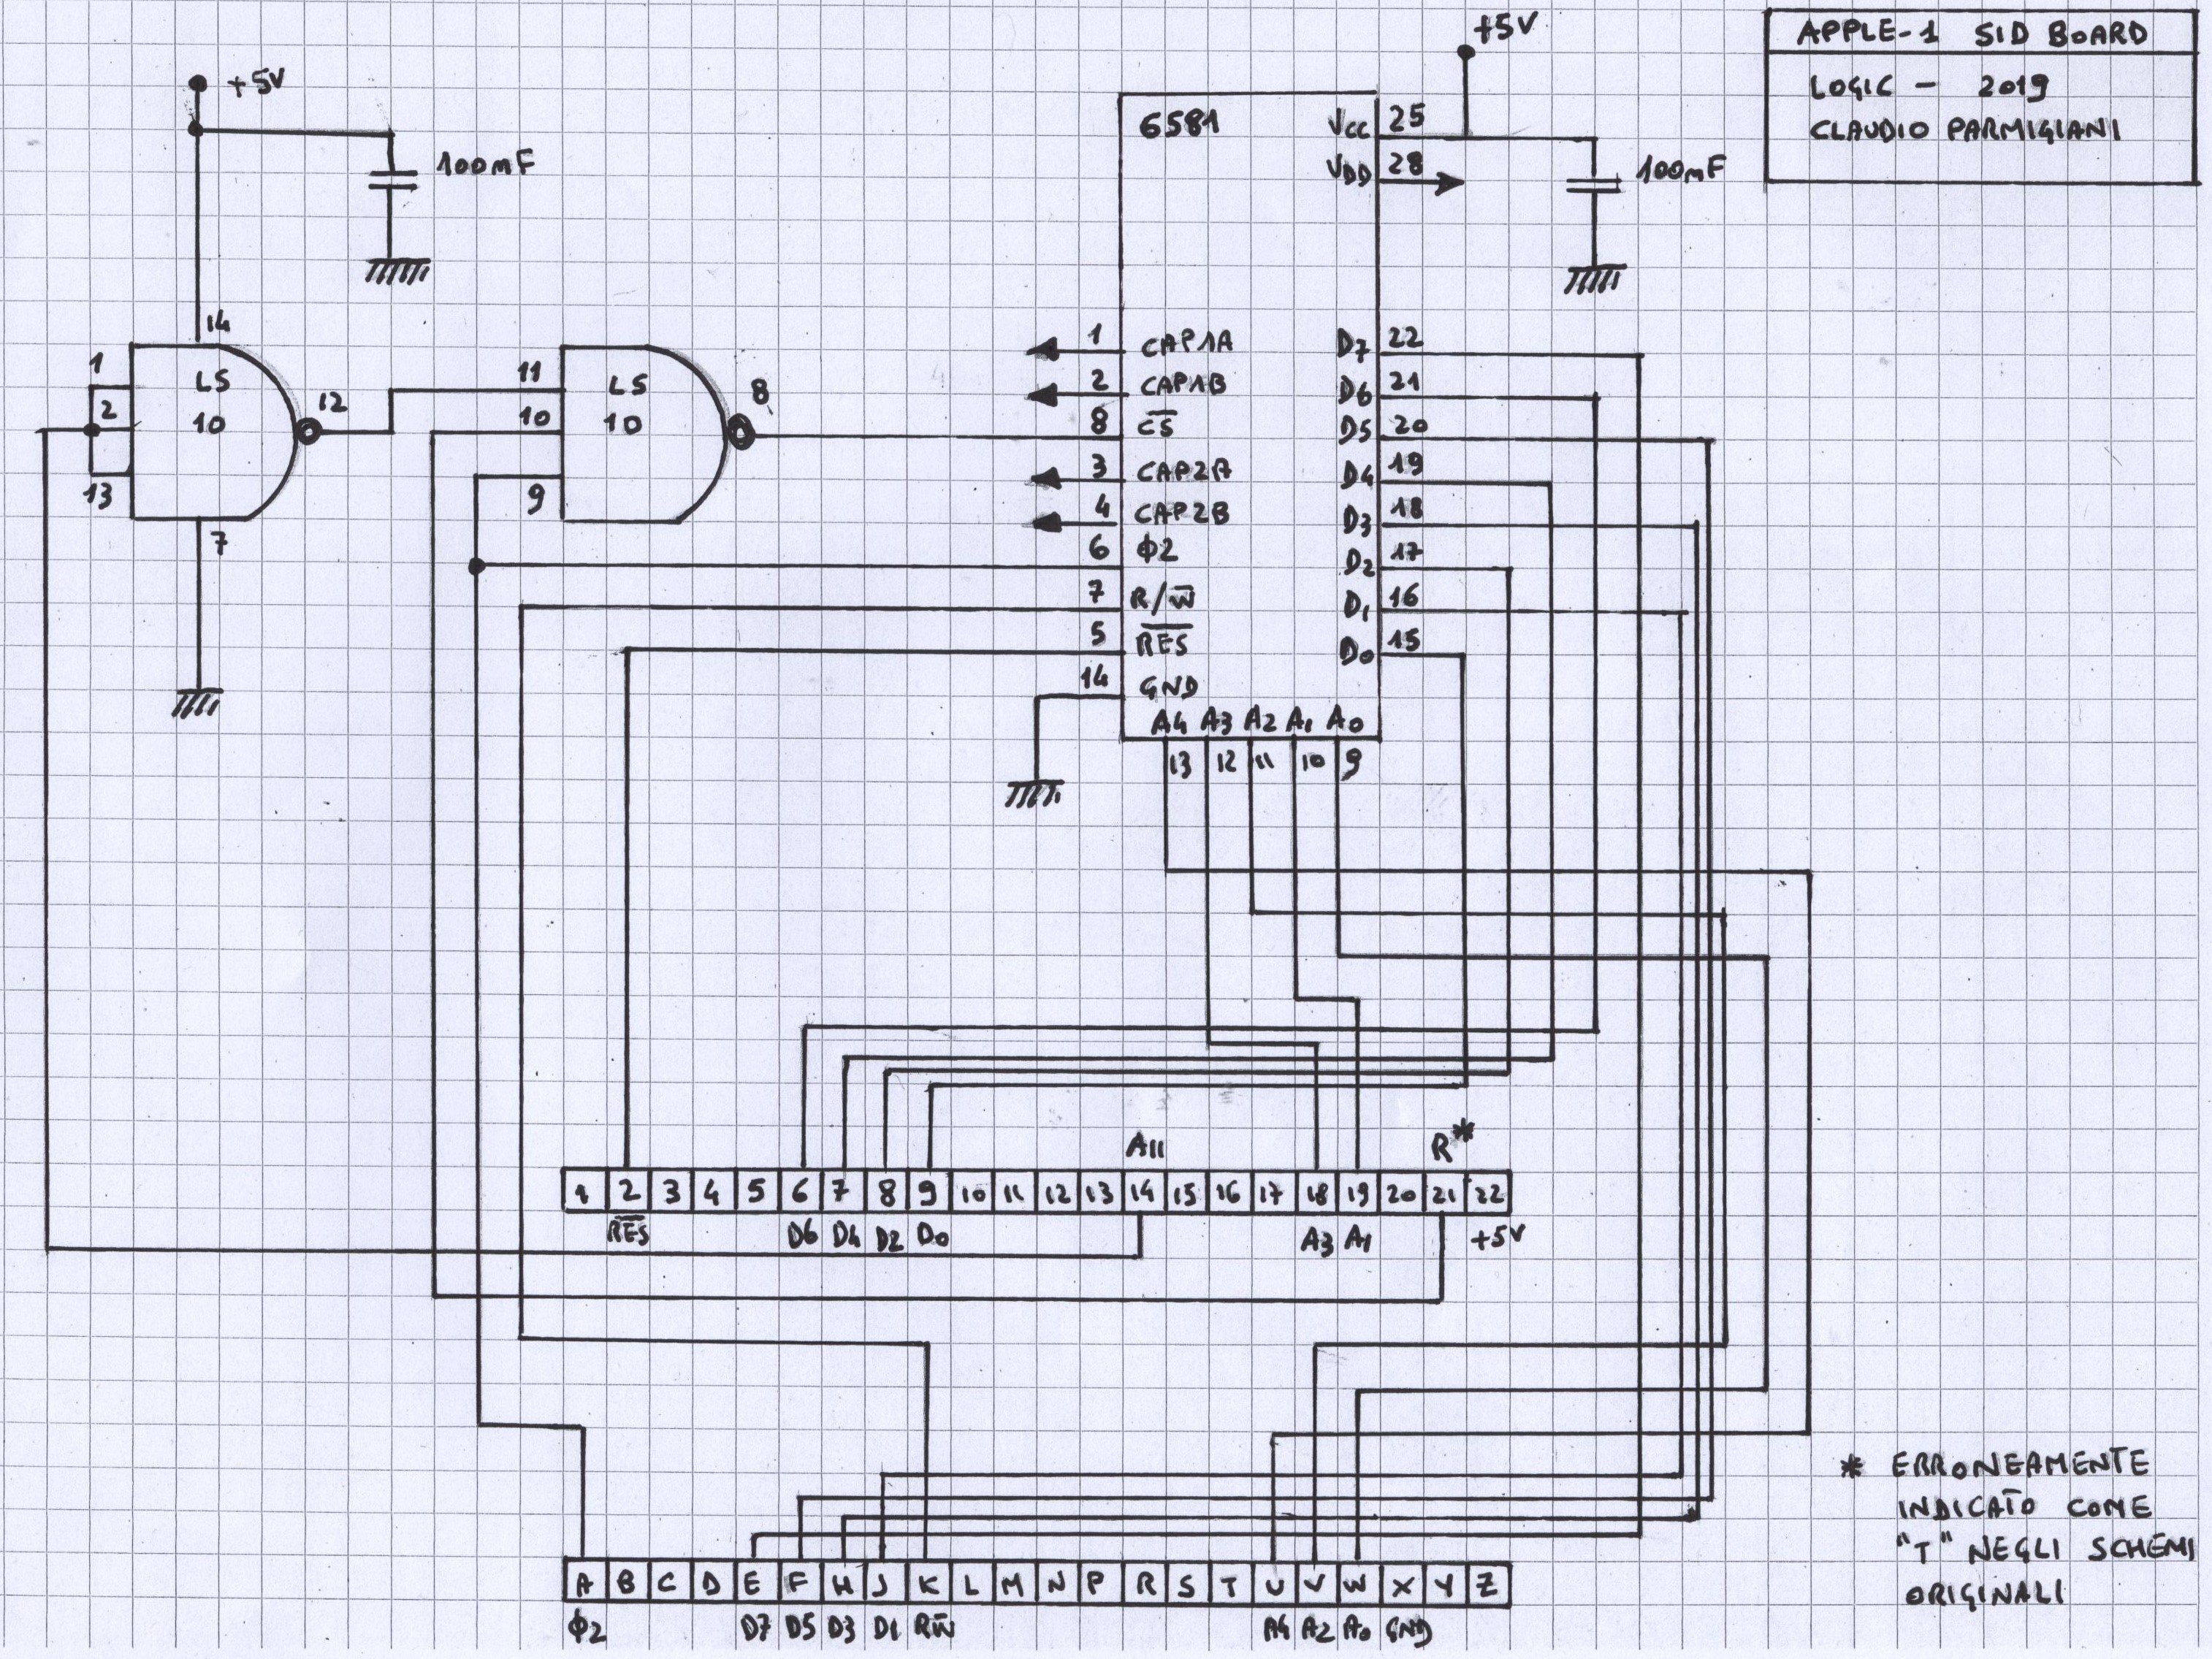 APPLE-1 SID BOARD
LOGIC - 2019
CLAUDIO PARMIGIANI
+5V
100mF
14
1
2
13
LS
10
12
7
11
10
9
LS
10
8
+5V
100mF
6581
Vcc 25
VDD 28
1 CAP1A
2 CAP1B
8 C̅S̅
3 CAP2A
4 CAP2B
6 Φ2
7 R/W̅
5 R̅E̅S̅
14 GND
D7 22
D6 21
D5 20
D4 19
D3 18
D2 17
D1 16
D0 15
A4 A3 A2 A1 A0
13 12 11 10 9
A11 R*
1 2 3 4 5 6 7 8 9 10 11 12 13 14 15 16 17 18 19 20 21 22
R̅E̅S̅ D6 D4 D2 D0 A3 A1 +5V
A B C D E F H J K L M N P R S T U V W X Y Z
Φ2 D7 D5 D3 D1 RW̅ A4 A2 A0 GND
* ERRONEAMENTE
INDICATO COME
"T" NEGLI SCHEMI
ORIGINALI